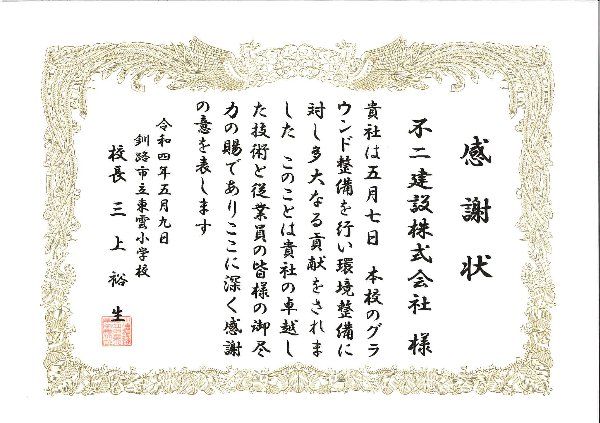 感謝状
不二建設株式会社 様
貴社は五月七日 本校のグラ
ウンド整備を行い環境整備に
対し多大なる貢献をされま
した このことは貴社の卓越し
た技術と従業員の皆様の御尽
力の賜でありここに深く感謝
の意を表します
令和四年五月九日
釧路市立東雲小学校
校長 三上裕生